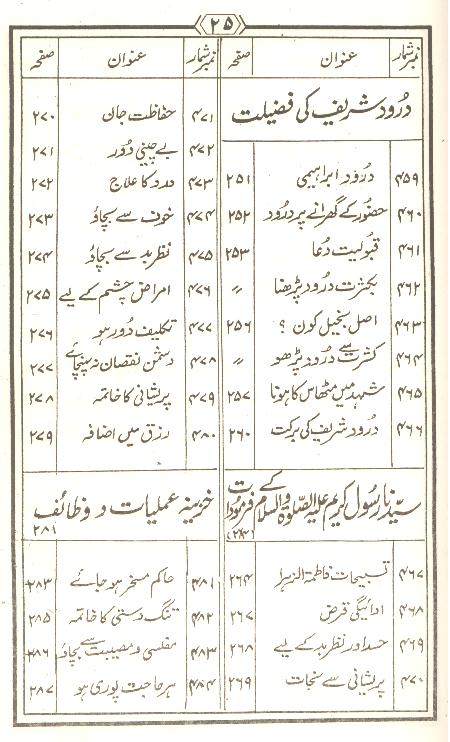 ۲۵
نمبر شمار عنوان صفحہ
درود شریف کی فضیلت
۴۵۹ درود ابراہیمی ۲۵۱
۴۶۰ حضور کے گھرانے پر درود ۲۵۲
۴۶۱ قبولیت دعا ۲۵۳
۴۶۲ بکثرت درود پڑھنا 〃
۴۶۳ اصل بخیل کون ؟ ۲۵۶
۴۶۴ کثرت سے درود پڑھو 〃
۴۶۵ شہد میں مٹھاس کا ہونا ۲۵۷
۴۶۶ درود شریف کی برکت ۲۶۰
سیدنا رسول کریم علیہ الصلوٰۃ والسلام کے فرمودات
۴۶۷ تسبیحات فاطمۃ الزہرا ۲۶۴
۴۶۸ ادائیگی قرض ۲۶۷
۴۶۹ حسد اور نظر بد کے لیے ۲۶۸
۴۷۰ پریشانی سے نجات ۲۶۹
نمبر شمار عنوان صفحہ
۴۷۱ حفاظت جان ۲۷۰
۴۷۲ بے چینی دور ۲۷۱
۴۷۳ درد کا علاج ۲۷۲
۴۷۴ خوف سے بچاؤ ۲۷۳
۴۷۵ نظر بد سے بچاؤ ۲۷۴
۴۷۶ امراض چشم کے لیے ۲۷۵
۴۷۷ تکلیف دور ہو ۲۷۶
۴۷۸ دشمن نقصان نہ پہنچائے ۲۷۷
۴۷۹ پریشانی کا خاتمہ ۲۷۸
۴۸۰ رزق میں اضافہ ۲۷۹
خزینہ عملیات و وظائف
۲۸۱
۴۸۱ حاکم مسخر ہو جائے ۲۸۳
۴۸۲ تنگ دستی کا خاتمہ ۲۸۵
۴۸۳ مفلسی و مصیبت سے بچاؤ ۲۸۶
۴۸۴ ہر حاجت پوری ہو ۲۸۷